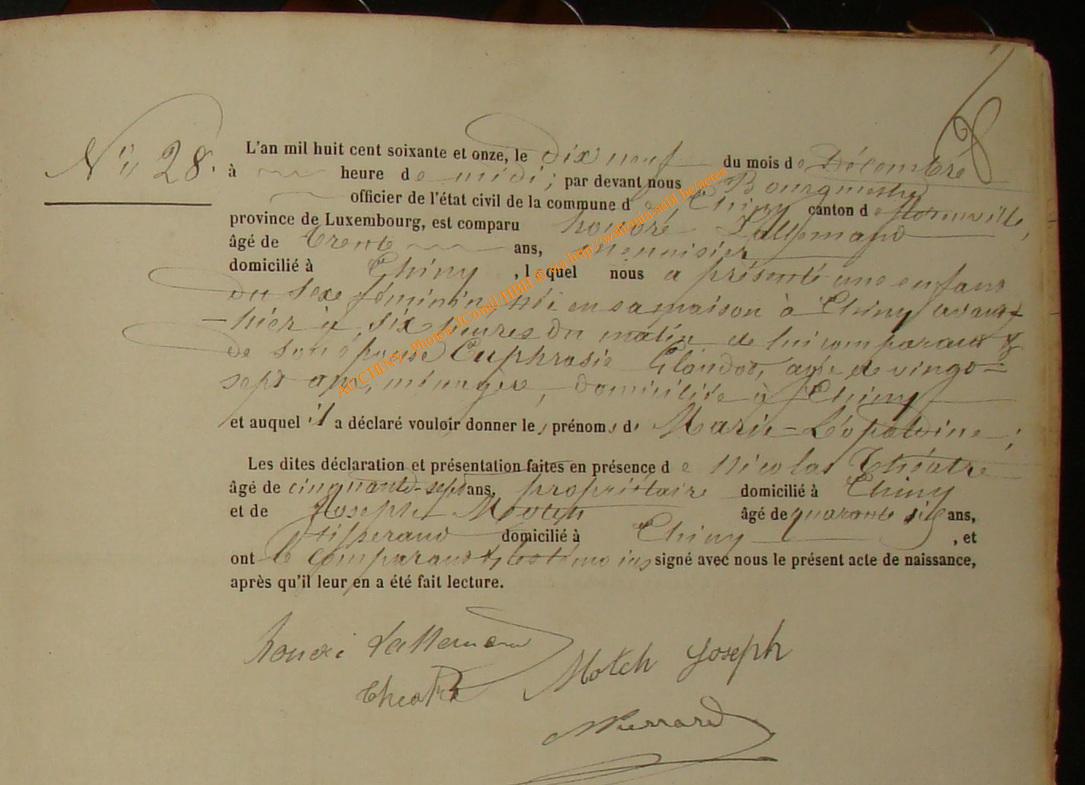 N° 28.
L'an mil huit cent soixante et onze, le dix neuf du mois de Décembre
à heure de midi; par devant nous Bourgmestre
officier de l'état civil de la commune de Chiny canton de florenville,
province de Luxembourg, est comparu honoré Lallemand
âgé de trente ans, menuisier
domicilié à Chiny, l quel nous a présenté une enfant
du sexe féminin née en sa maison à Chiny avant
-hier à six heures du matin de lui comparant &
de son épouse Euphrasie Claudot, agée de vingt-
sept ans, ménagère, domiciliée à Chiny
et auquel il a déclaré vouloir donner les prénoms de Marie-Léopoldine;
Les dites déclaration et présentation faites en présence de Nicolas Théatre
âgé de cinquante-sept ans, propriétaire domicilié à Chiny
et de Joseph Motch âgé de quarante six ans,
tisserand domicilié à Chiny, et
ont le comparant & les témoins signé avec nous le présent acte de naissance,
après qu'il leur en a été fait lecture.
honoré Lallemand
Motch Joseph
Theatre
Pierrard